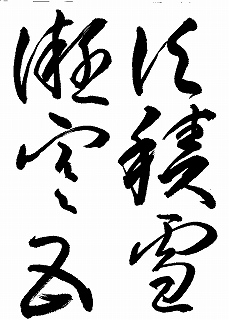 頃積雪
凝寒五